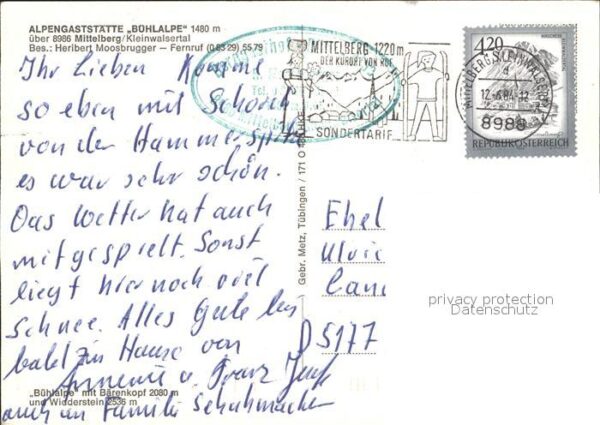 ALPENGASTSTÄTTE „BÜHLALPE" 1480 m
über 8986 Mittelberg/Kleinwalsertal
Bes.: Heribert Moosbrugger – Fernruf (0 83 29) 55 79
MITTELBERG · 1220 m
DER KURORT VON RUF
SONDERTARIF
MITTELBERG, KLEINWALSERTAL
a
12.-6.84-12
8986
4,20
REPUBLIK ÖSTERREICH
Ihr Lieben Komme
so eben mit Schorsch
von der Hammerspitze
es war sehr schön.
Das Wetter hat auch
mitgespielt. Sonst
liegt hier noch viel
Schnee. Alles Gute bis
bald zu Hause von
Annemie u. Franz
auch an Familie Schuhmacher
„Bühlalpe" mit Bärenkopf 2080 m
und Widderstein 2536 m
Gebr. Metz, Tübingen / 171 O
Ehel
Ulric
D 5177
privacy protection
Datenschutz